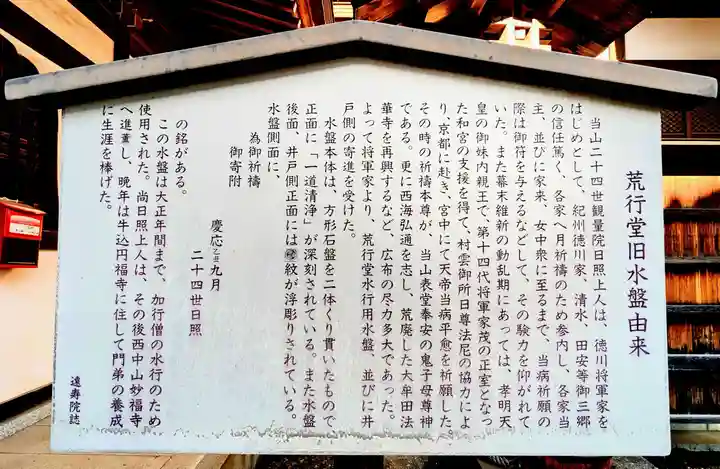 荒行堂旧水盤由来
当山二十四世観量院日照上人は、徳川将軍家を
はじめとして、紀州徳川家、清水、田安等御三郷
の信任篤く、各家へ月祈祷のため参内し、各家当
主、並びに家来、女中衆に至るまで、当病祈願の
際は御符を与えるなどして、その験力を仰がれて
いた。また幕末維新の動乱期にあっては、孝明天
皇の御妹内親王で、第十四代将軍家茂の正室となっ
た和宮の支援を得て、村雲御所日尊法尼の協力によ
り、京都に赴き、宮中にて天帝当病平愈を祈願した。
その時の祈祷本尊が、当山表堂奉安の鬼子母尊神
である。更に西海弘通を志し、荒廃した大牟田法
華寺を再興するなど、広布の尽力多大であった。
よって将軍家より、荒行堂水行用水盤、並びに井
戸側の寄進を受けた。
水盤本体は、方形石盤を二体くり貫いたもので
正面に「一道清浄」が深刻されている。また水盤
後面、井戸側正面には紋が浮彫りされている。
水盤側面に、
為御祈禱
御寄附
慶応乙丑九月
二十四世日照
の銘がある。
この水盤は大正年間まで、加行僧の水行のため
使用された。尚日照上人は、その後西中山妙福寺
へ進董し、晩年は牛込円福寺に住して門弟の養成
に生涯を捧げた。
遠寿院誌